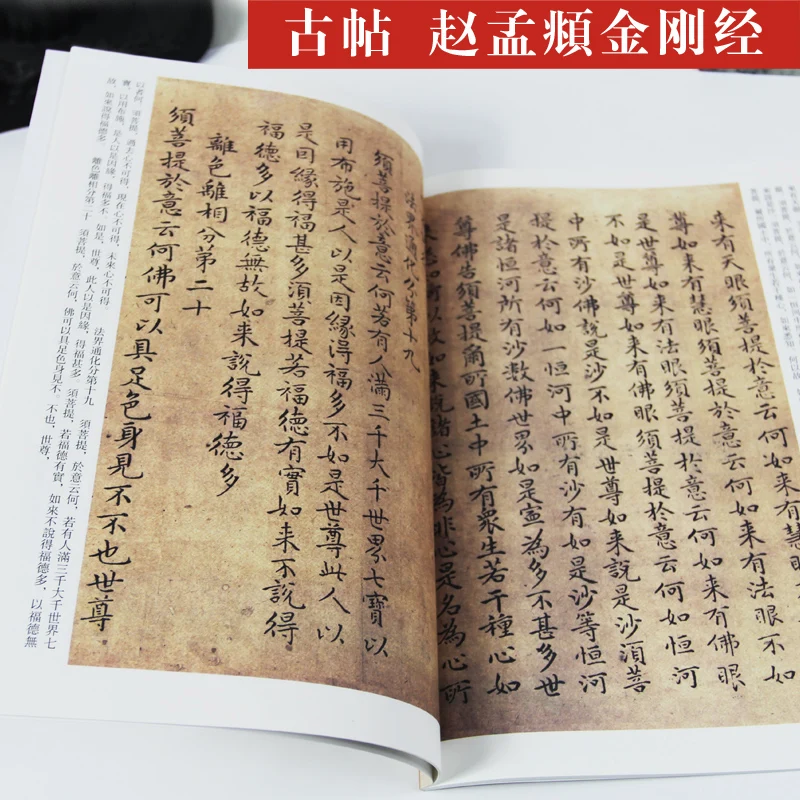 古帖 赵孟頫金刚经
来有天眼須菩提於意云何如来有慧眼
尊如来有慧眼須菩提於意云何如来有法眼不如
是世尊如来有法眼須菩提於意云何如来有佛眼
不如是世尊如来有佛眼須菩提於意云何如恒河
中所有沙佛說是沙不如是世尊如来說是沙須菩
提於意云何如一恒河中所有沙有如是沙等恒河
是諸恒河所有沙數佛世界如是寧為多不甚多世
尊佛告須菩提爾所國土中所有衆生若干種心如
来悉知何以故如来說諸心皆為非心是名為心所
法界通化分第十九
須菩提於意云何若有人滿三千大千世界七寶以
用布施是人以是因緣得福多不如是世尊此人以
是因緣得福甚多須菩提若福德有實如来不說得
福德多以福德無故如来說得福德多
離色離相分第二十
須菩提於意云何佛可以具足色身見不不也世尊
以者何，須菩提，過去心不可得，現在心不可得，未來心不可得。 法界通化分第十九 須菩提，於意云何，若有人滿三千大千世界七
寶，以用布施，是人以是因緣，得福多不。如是，世尊，此人以是因緣，得福甚多。須菩提，若福德有實，如來不說得福德多，以福德無
故，如來說得福德多。 離色離相分第二十 須菩提，於意云何，佛可以具足色身見不。不也，世尊，